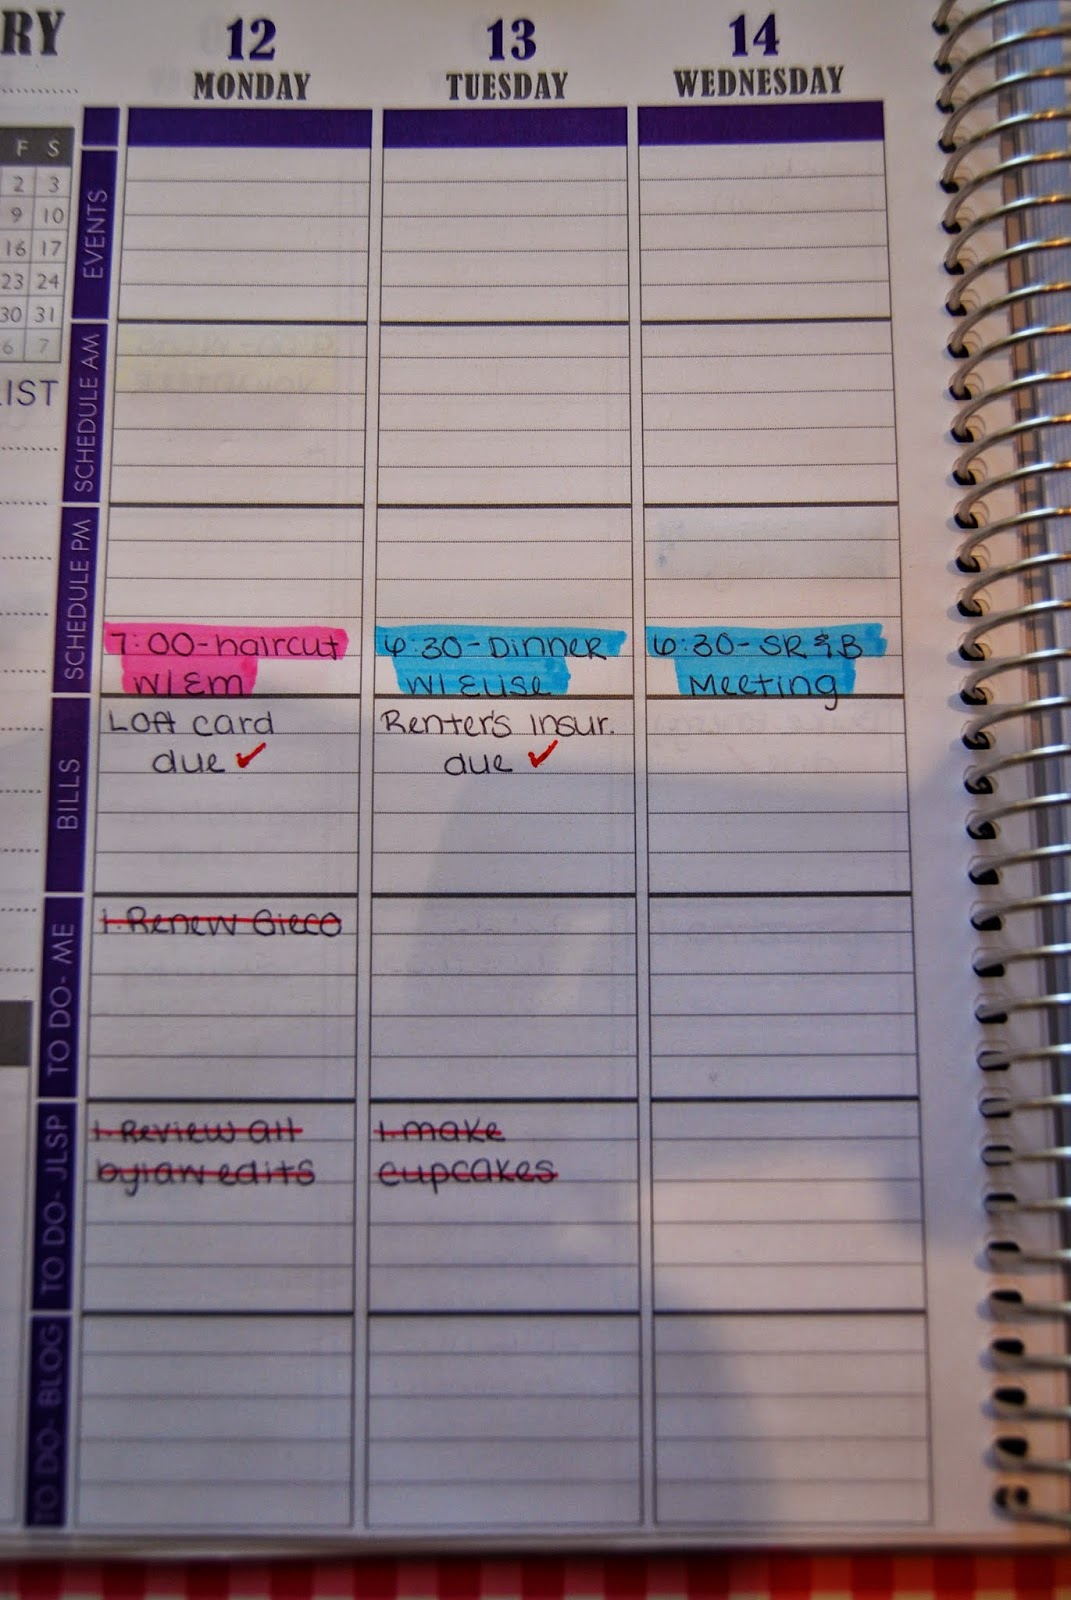 RY
12
13
14
MONDAY
TUESDAY
WEDNESDAY
F S
2 3
9 10
16 17
23 24
30 31
6 7
LIST
EVENTS
SCHEDULE AM
SCHEDULE PM
7:00-haircut
w/ Em
6:30-Dinner
w/ Elise
6:30-SR&B
Meeting
BILLS
Loft card
due ✓
Renter's Insur.
due ✓
TO DO- ME
1. Renew Gieco
TO DO- JLSP
1. Review all
bylaw edits
1. make
cupcakes
TO DO- BLOG